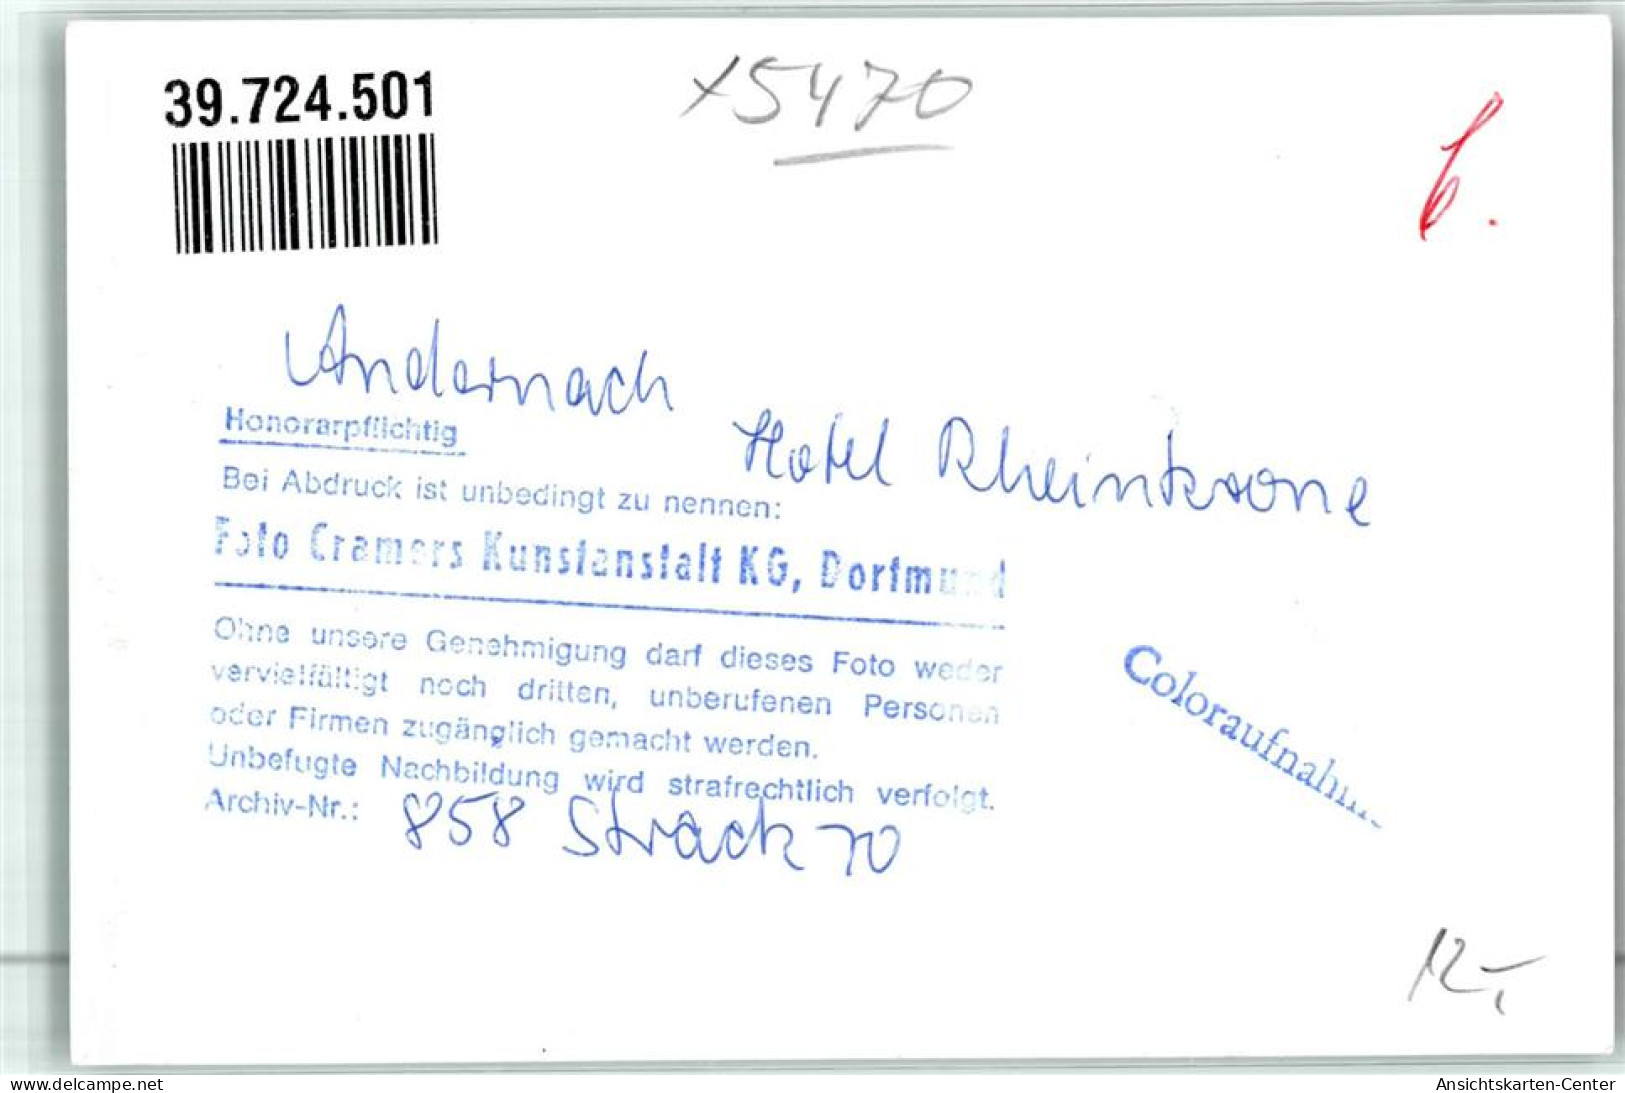 39.724.501
x5470
Andernach
Hotel Rheinkrone
Honorarpflichtig
Bei Abdruck ist unbedingt zu nennen:
Foto Cramers Kunstanstalt KG, Dortmund
Ohne unsere Genehmigung darf dieses Foto weder
vervielfältigt noch dritten, unberufenen Personen
oder Firmen zugänglich gemacht werden.
Unbefugte Nachbildung wird strafrechtlich verfolgt.
Archiv-Nr.: 858 Strack 70
Coloraufnahm
12,-
www.delcampe.net
Ansichtskarten-Center